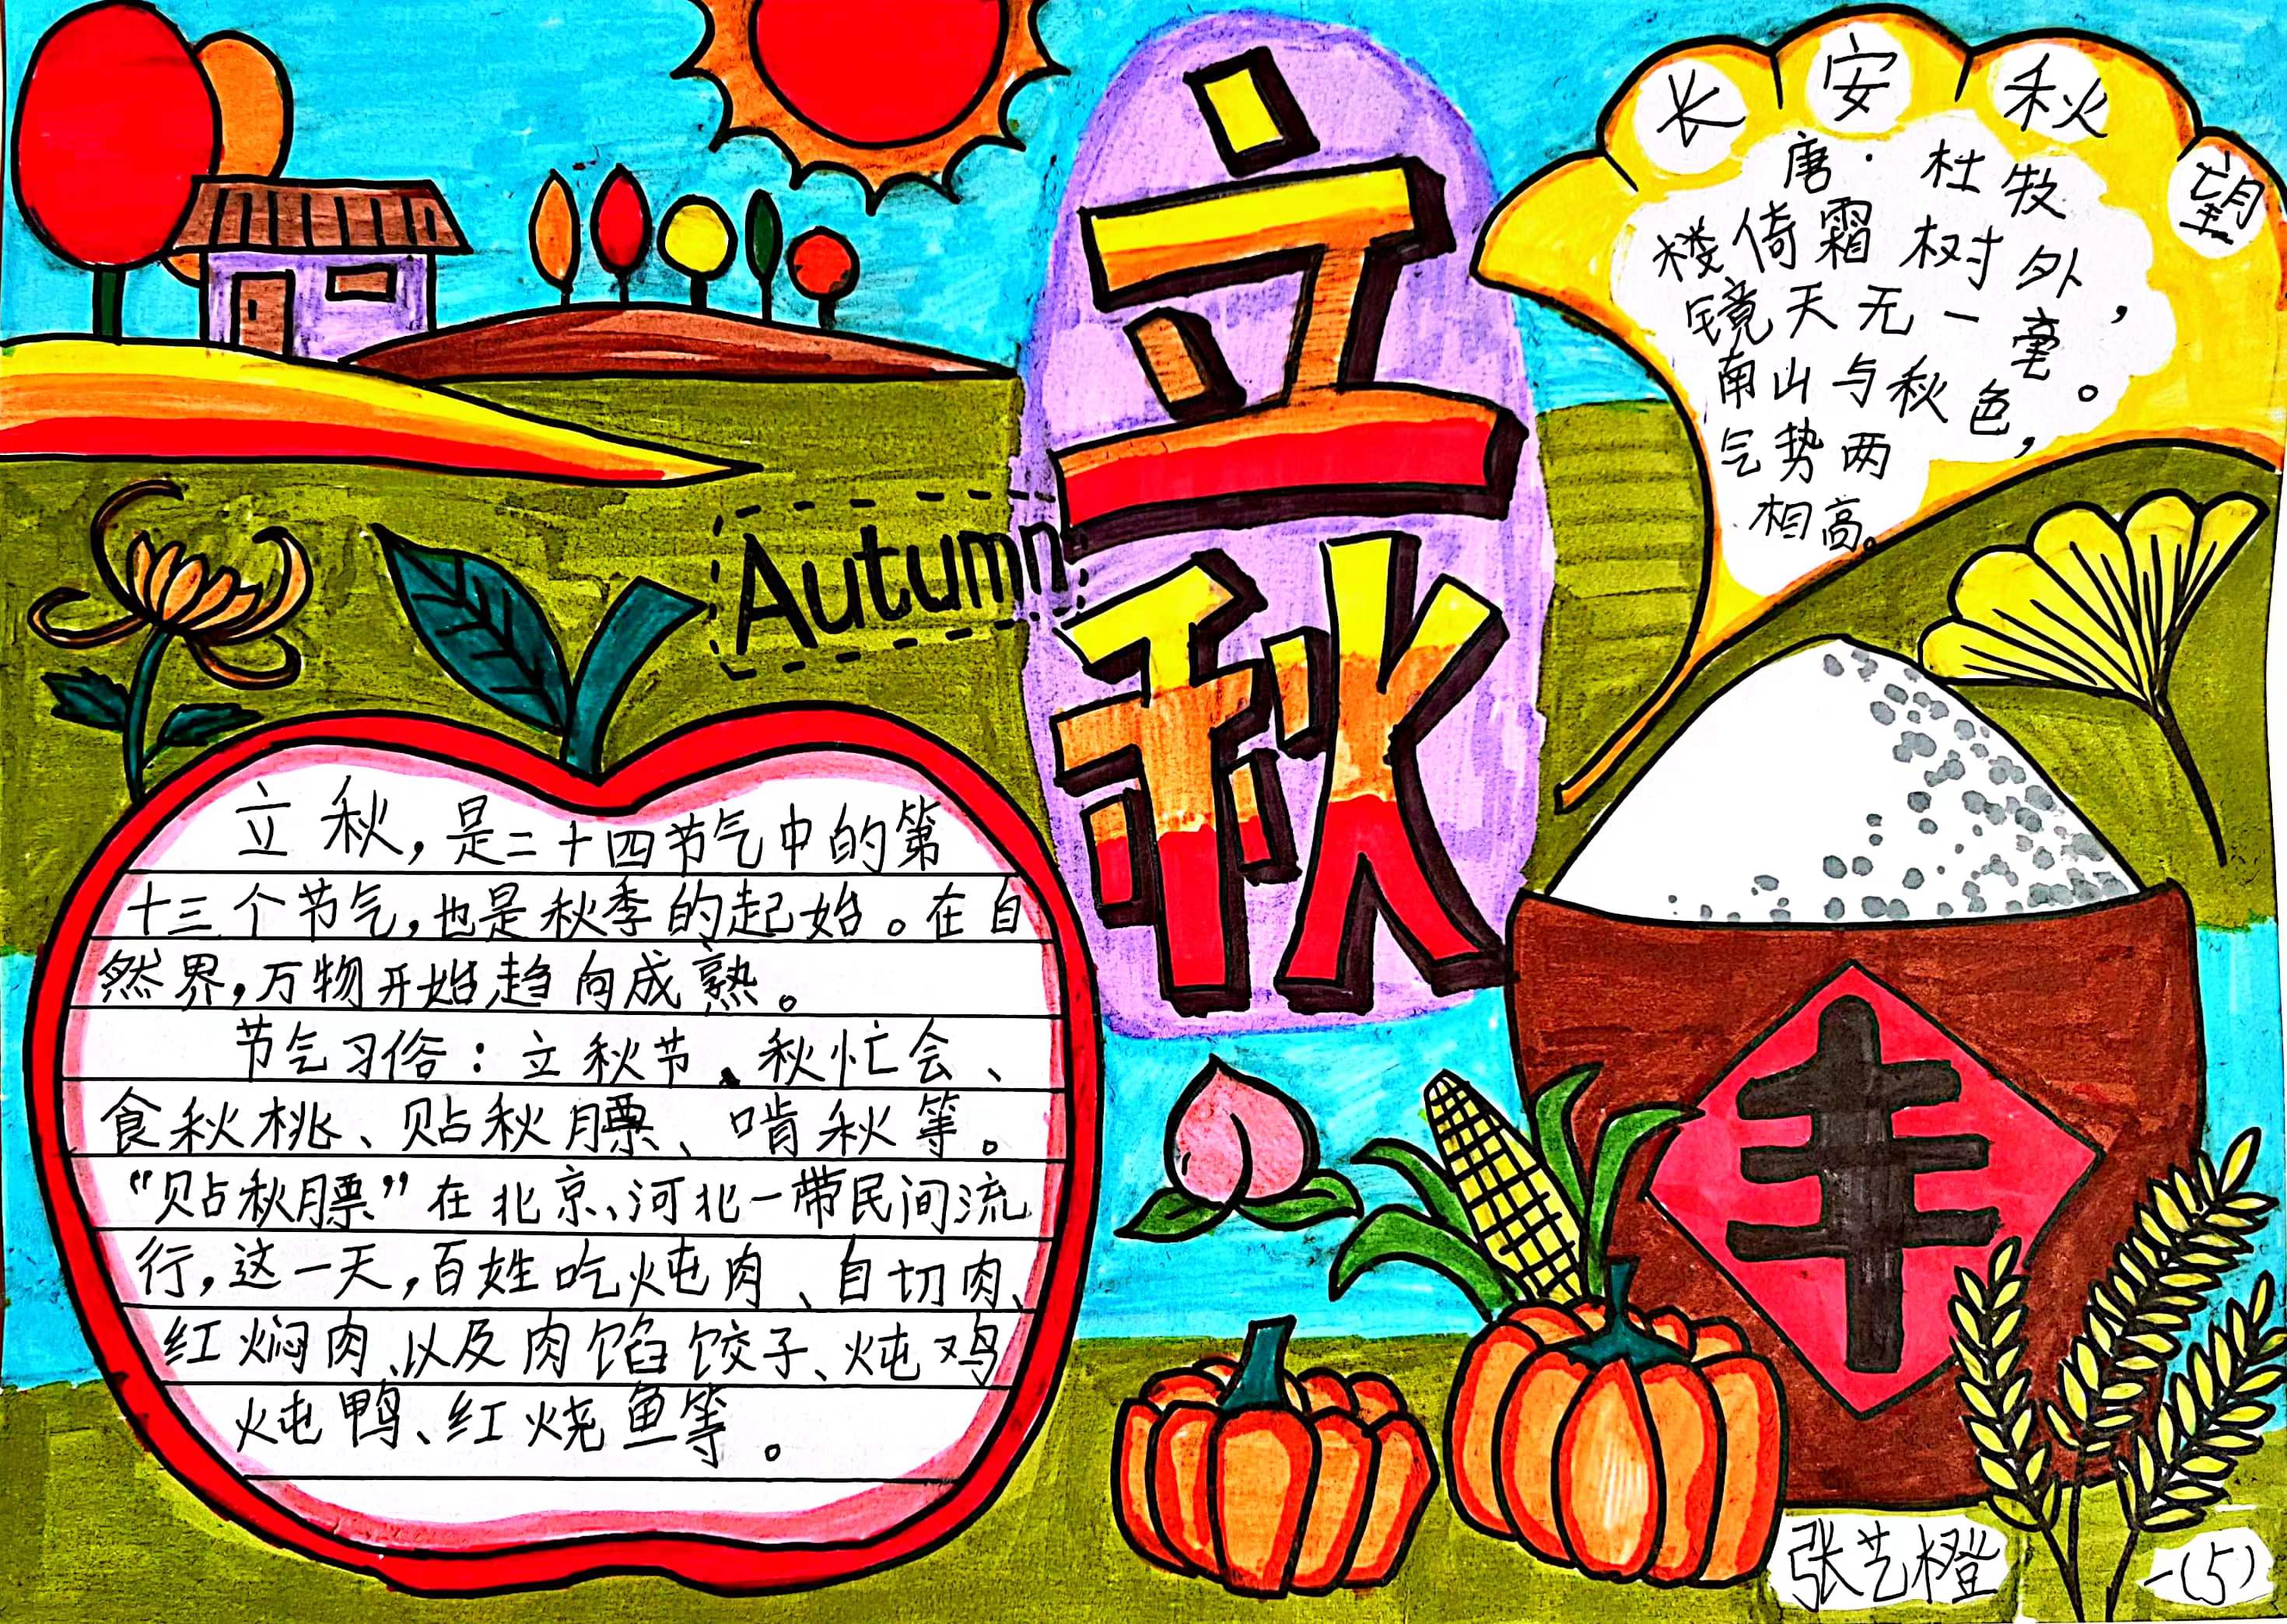 立秋
Autumn
长安秋望
唐·杜牧
楼倚霜树外，
镜天无一毫。
南山与秋色，
气势两
相高。
立秋，是二十四节气中的第
十三个节气，也是秋季的起始。在自
然界，万物开始趋向成熟。
节气习俗：立秋节、秋忙会、
食秋桃、贴秋膘、啃秋等。
“贴秋膘”在北京、河北一带民间流
行，这一天，百姓吃炖肉、自切肉、
红焖肉、以及肉馅饺子、炖鸡
炖鸭、红烧鱼等。
丰
张艺橙
一(5)